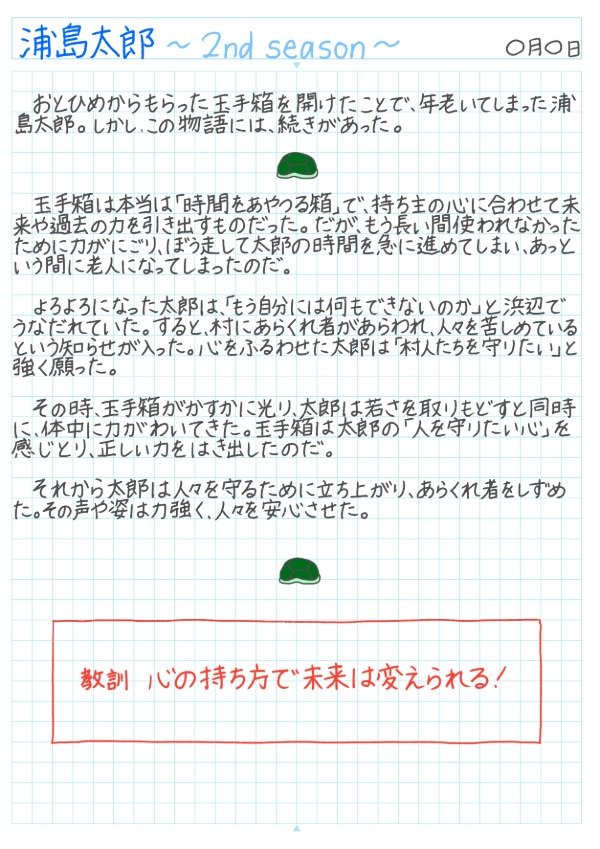 浦島太郎 ～2nd season～ 〇月〇日
おとひめからもらった玉手箱を開けたことで、年老いてしまった浦
島太郎。しかし、この物語には、続きがあった。
玉手箱は本当は「時間をあやつる箱」で、持ち主の心に合わせて未
来や過去の力を引き出すものだった。だが、もう長い間使われなかった
ために力がにごり、ぼう走して太郎の時間を急に進めてしまい、あっと
いう間に老人になってしまったのだ。
よろよろになった太郎は、「もう自分には何もできないのか」と浜辺で
うなだれていた。すると、村にあらくれ者があらわれ、人々を苦しめている
という知らせが入った。心をふるわせた太郎は「村人たちを守りたい」と
強く願った。
その時、玉手箱がかすかに光り、太郎は若さを取りもどすと同時
に、体中に力がわいてきた。玉手箱は太郎の「人を守りたい心」を
感じとり、正しい力をはき出したのだ。
それから太郎は人々を守るために立ち上がり、あらくれ者をしずめ
た。その声や姿は力強く、人々を安心させた。
教訓 心の持ち方で未来は変えられる!